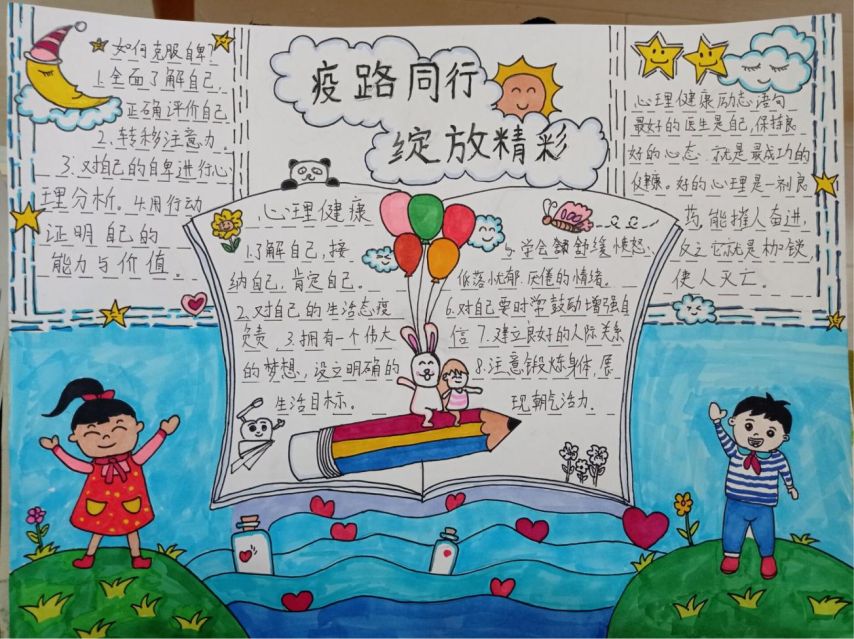 疫路同行
绽放精彩
如何克服自卑?
1.全面了解自己,
正确评价自己
2.转移注意力.
3.对自己的自卑进行心
理分析。4.用行动
证明自己的
能力与价值。
心理健康
1.了解自己,接
纳自己,肯定自己.
2.对自己的生活态度
负责.3.拥有一个伟大
的梦想,设立明确的
生活目标.
5.学会 舒缓愤怒、
低落忧郁、厌倦的情绪.
6.对自己要时常鼓励增强自
信 7.建立良好的人际关系
8.注意锻炼身体,展
现朝气活力.
心理健康励志语句
最好的医生是自己,保持良
好的心态.就是最成功的
健康。好的心理是一剂良
药,能摧人奋进,
反之它就是枷锁,
使人灭亡.